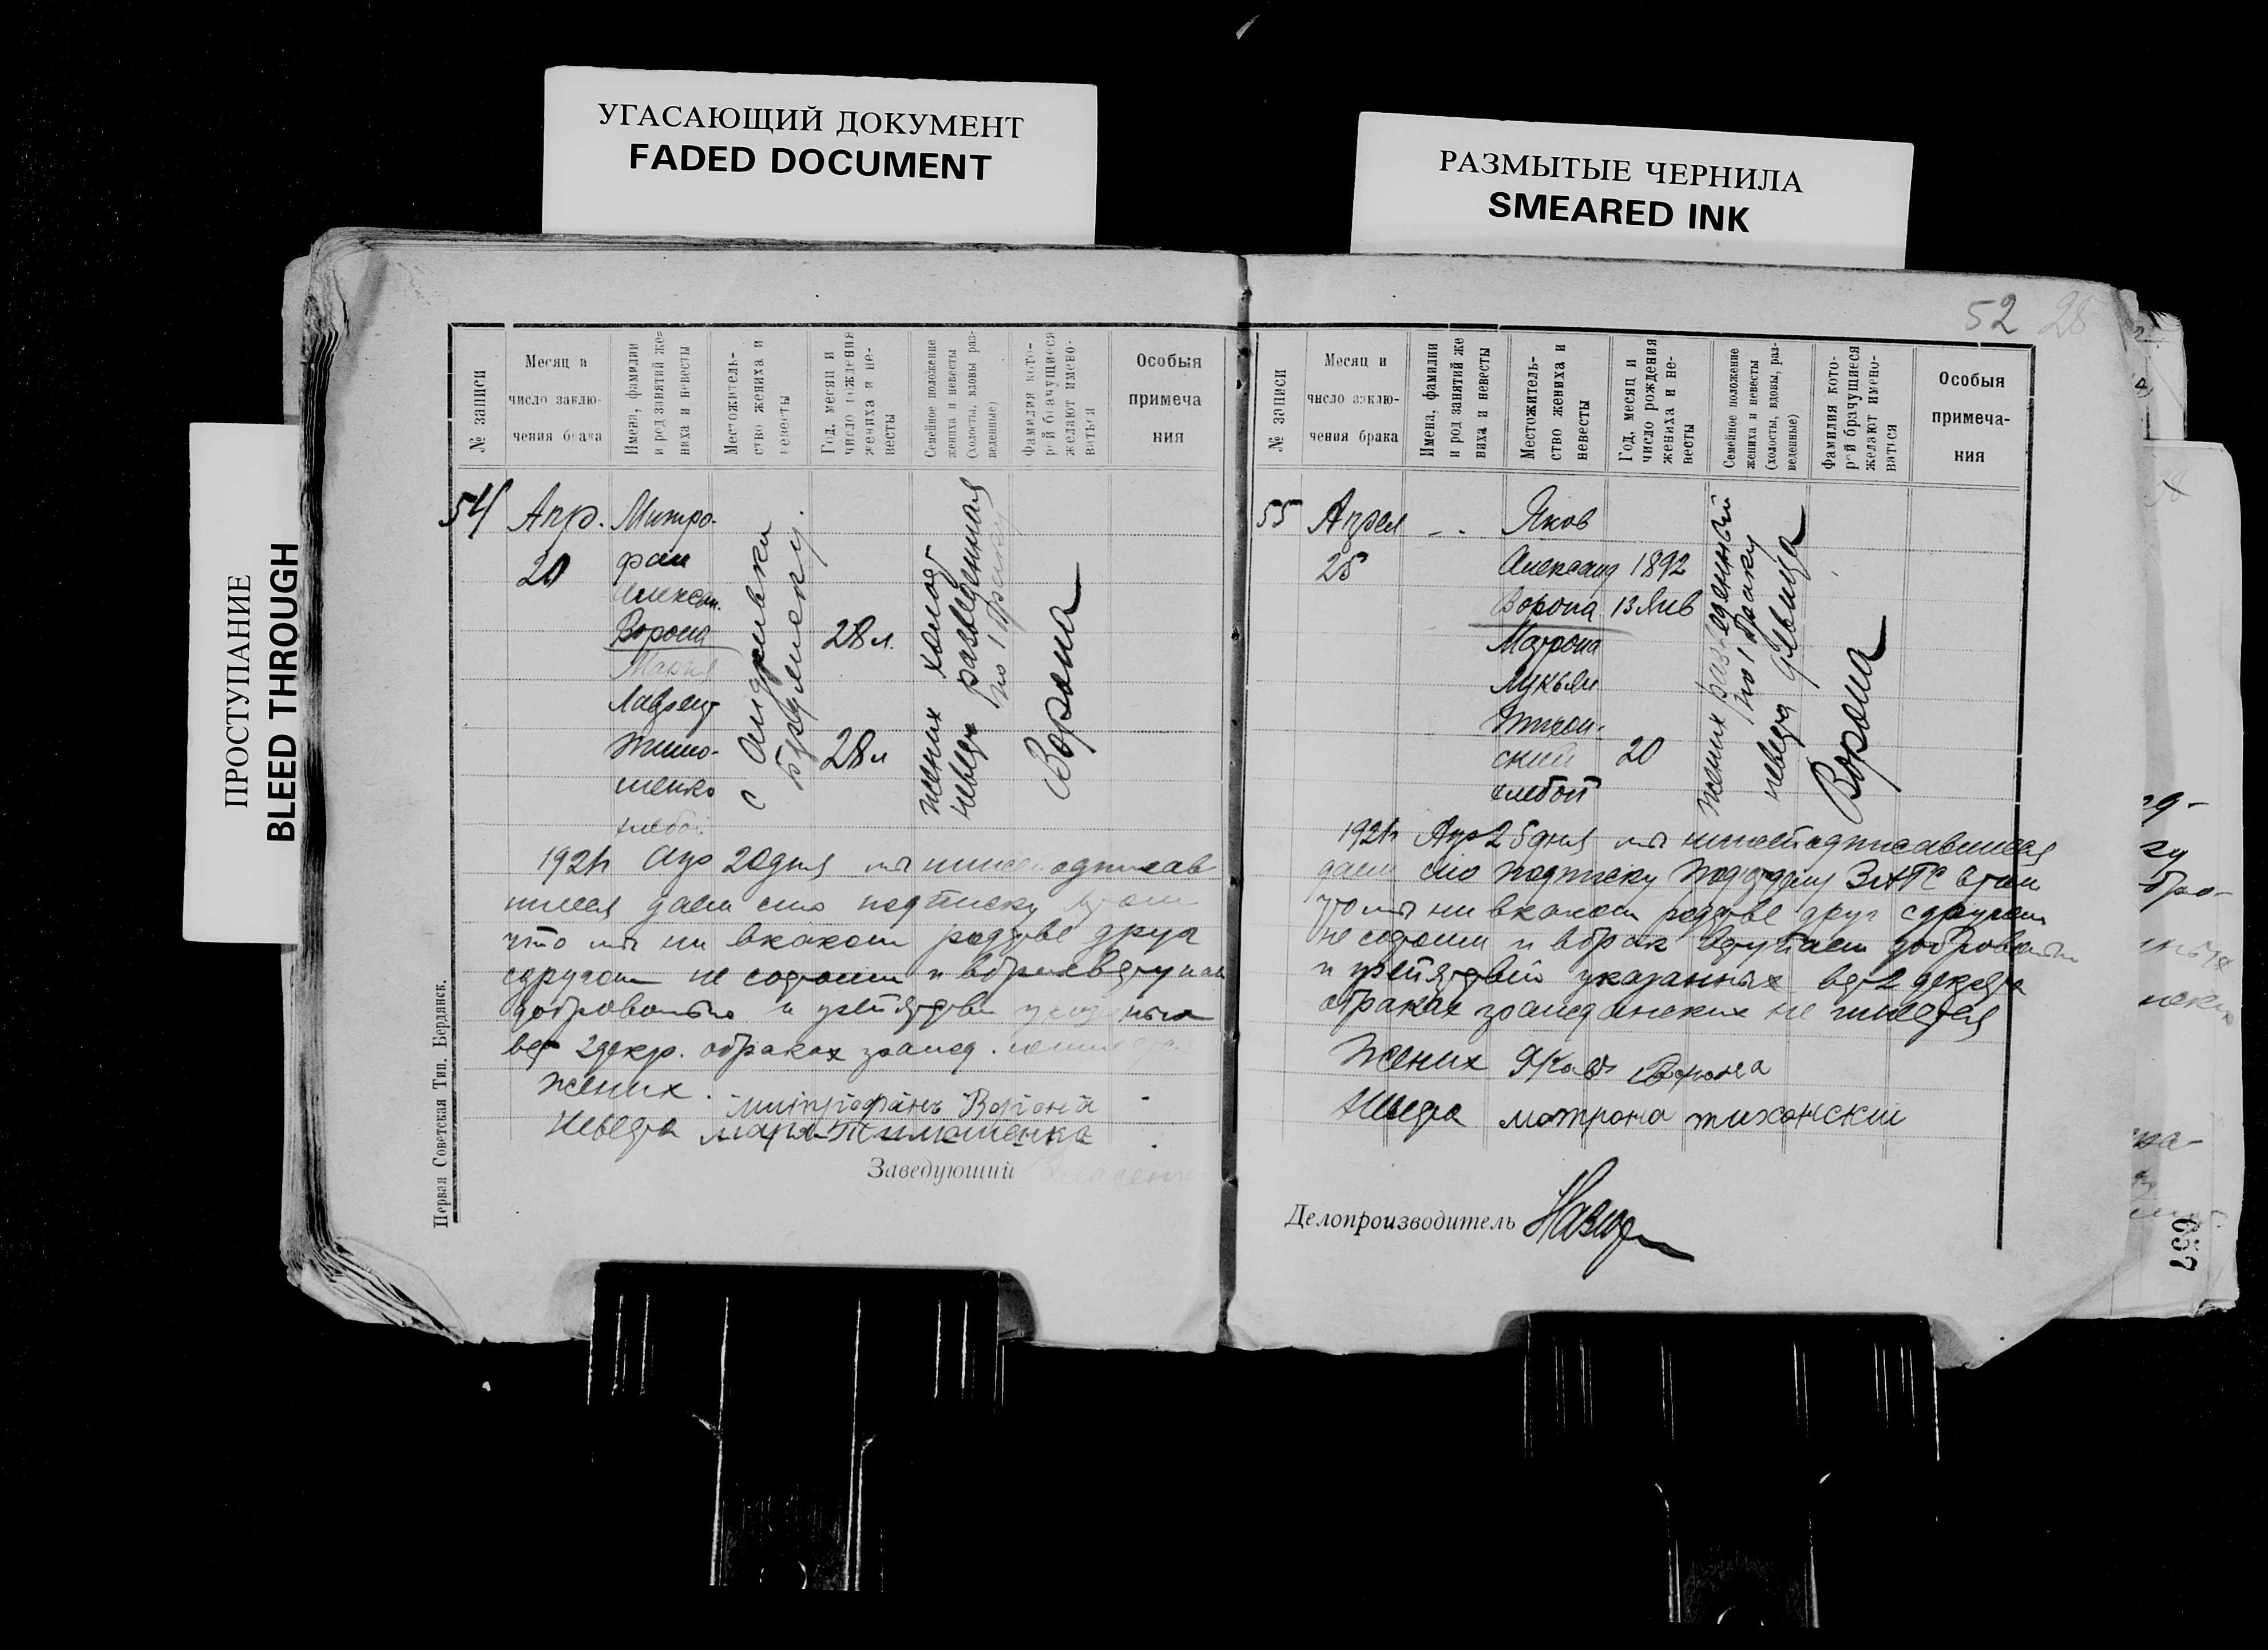 УГАСАЮЩИЙ ДОКУМЕНТ
FADED DOCUMENT
РАЗМЫТЫЕ ЧЕРНИЛА
SMEARED INK
ПРОСТУПАНИЕ
BLEED THROUGH
52 28
№ записи
Месяц и
число заклю-
чения брака
Имена, фамилии
и род занятий же=
ниха и невесты
Местожитель-
ство жениха и
невесты
Год, месяц и
число рождения
жениха и не-
весты
Семейное положение
жениха и невесты
(холосты, вдовы раз-
веденные)
Фамилия кото-
рой брачущиеся
желают имено-
ваться
Особыя
примеча
ния
54 Апр.
20
Митро-
фан
Алексан.
Ворона
Мария
Лаврент
Тимо-
шенко
хлебоп
28 л.
28 л
жених холост
невеста разведенная
по 1 браку
Ворона
1921г Апр 20 дня мы нижеподписав
шиеся даем сию подписку
что мы ни в каком родстве друг
с другом не состоим и в брак вступаем
добровольно и препятствий
2 декр. о браках гражд.
Жених. митрофанъ Ворона
Невеста мария Тимошенка
Заведующий
Первая Советская Тип. Бердянск.
№ записи
Месяц и
число заклю-
чения брака
Имена, фамилии
и род занятий же
ниха и невесты
Местожитель-
ство жениха и
невесты
Год, месяц и
число рождения
жениха и не-
весты
Семейное положение
жениха и невесты
(холосты, вдовы, раз-
веденные)
Фамилия кото-
рой брачущиеся
желают имено-
ваться
Особыя
примеча-
ния
55 Апрел
25
Яков
Александ 1892
Ворона 13 Янв
Матрона
Лукьян
Тихон-
ский 20
хлебоп
жених разведенный
по 1 браку
невеста девица
Ворона
1921г Апр 25 дня мы нижеподписавшиеся
даем сию подписку ЗАГС в том
что мы ни в каком родстве друг с другом
не состоим и в брак вступаем добровольно
и препятствий указанных в ст 2 декрета
о браках гражданских не имеется
Жених Яковъ Ворона
Невеста матрона тихонский
Делопроизводитель
637